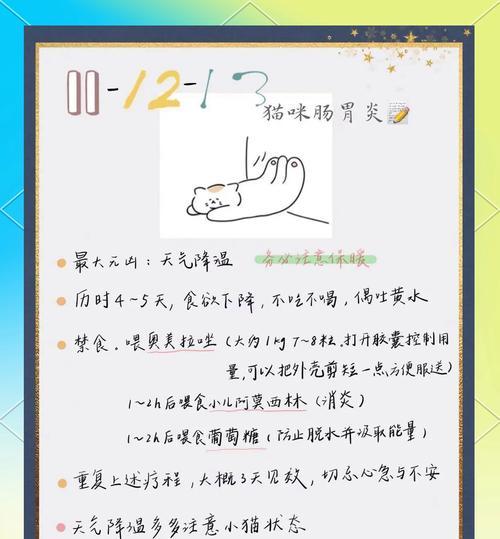 11-12-13
猫咪肠胃炎
最大元凶：天气降温 务必注意保暖
历时4~5天，食欲下降，不吃不喝，偶吐黄水
禁食。喂奥美拉唑（大约1kg 7~8粒，打开胶囊控制用
量，可以把外壳剪短一点方便服送）
1~2h后喂食小儿阿莫西林（消炎）
1~2h后喂食葡萄糖（防止脱水并汲取能量）
重复上述疗程，大概3天见效，切忌心急与不安
天气降温多多注意小猫状态